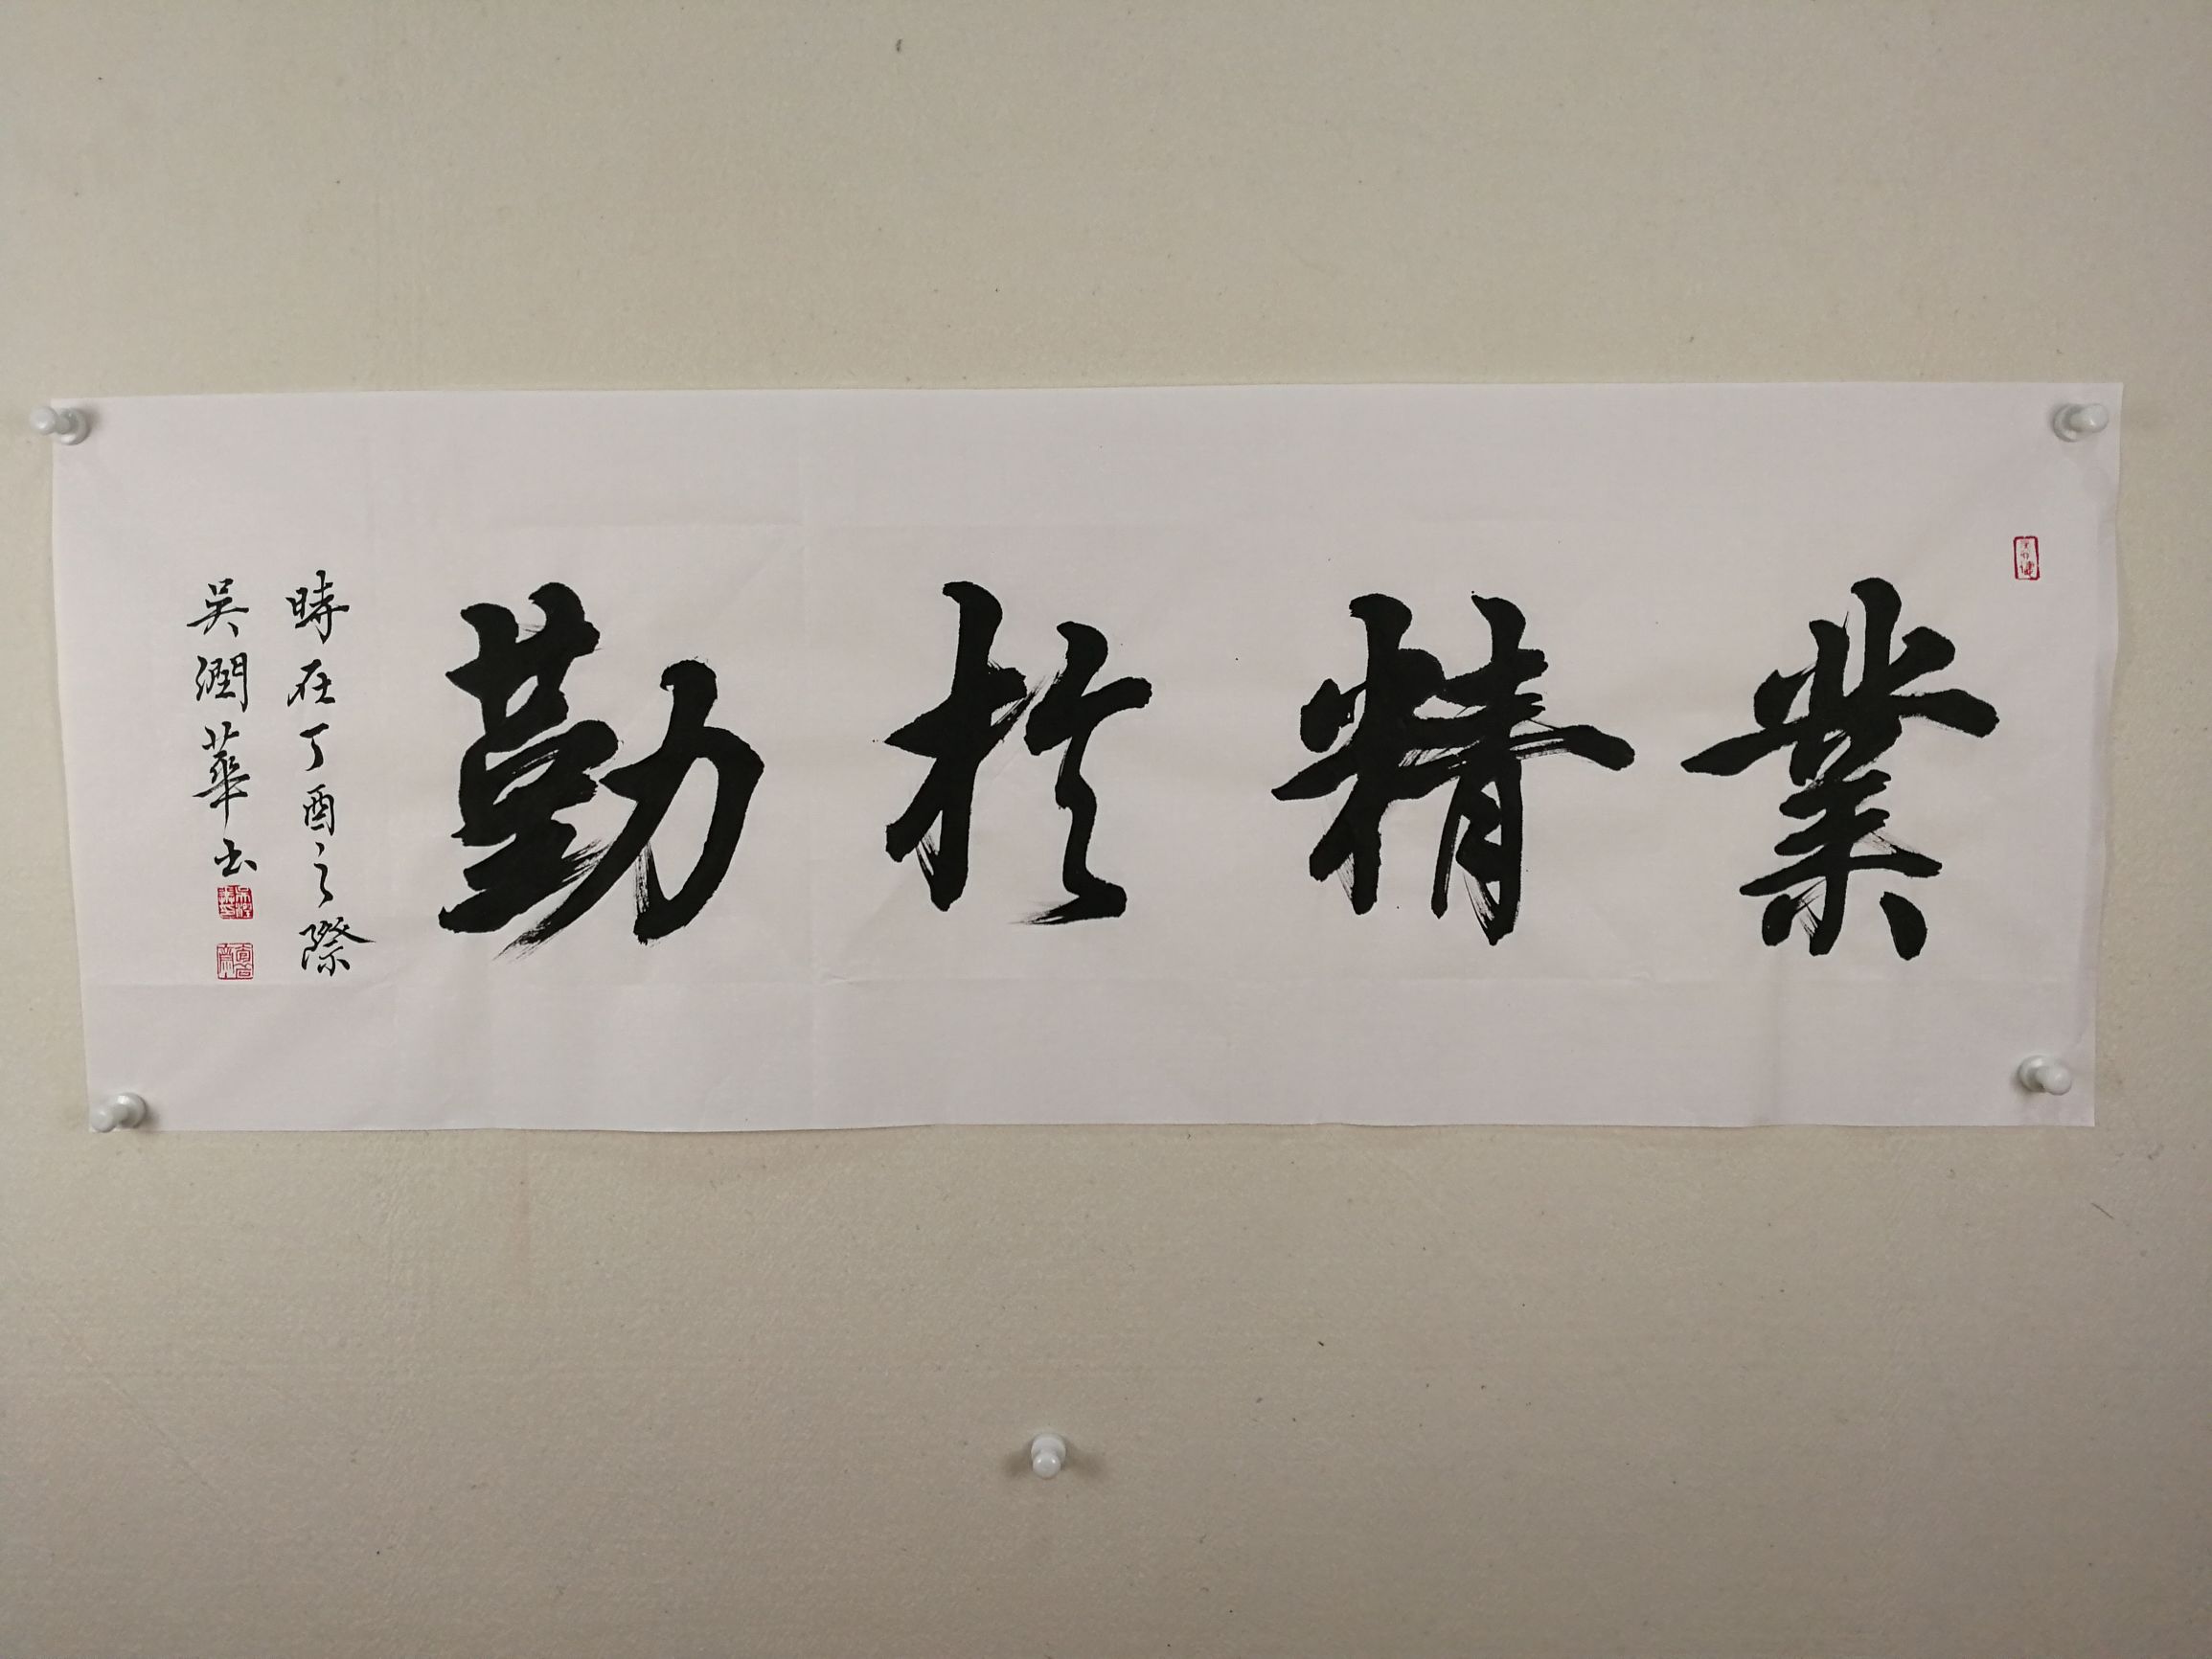 業精於勤
時在丁酉之際
吳潤華书